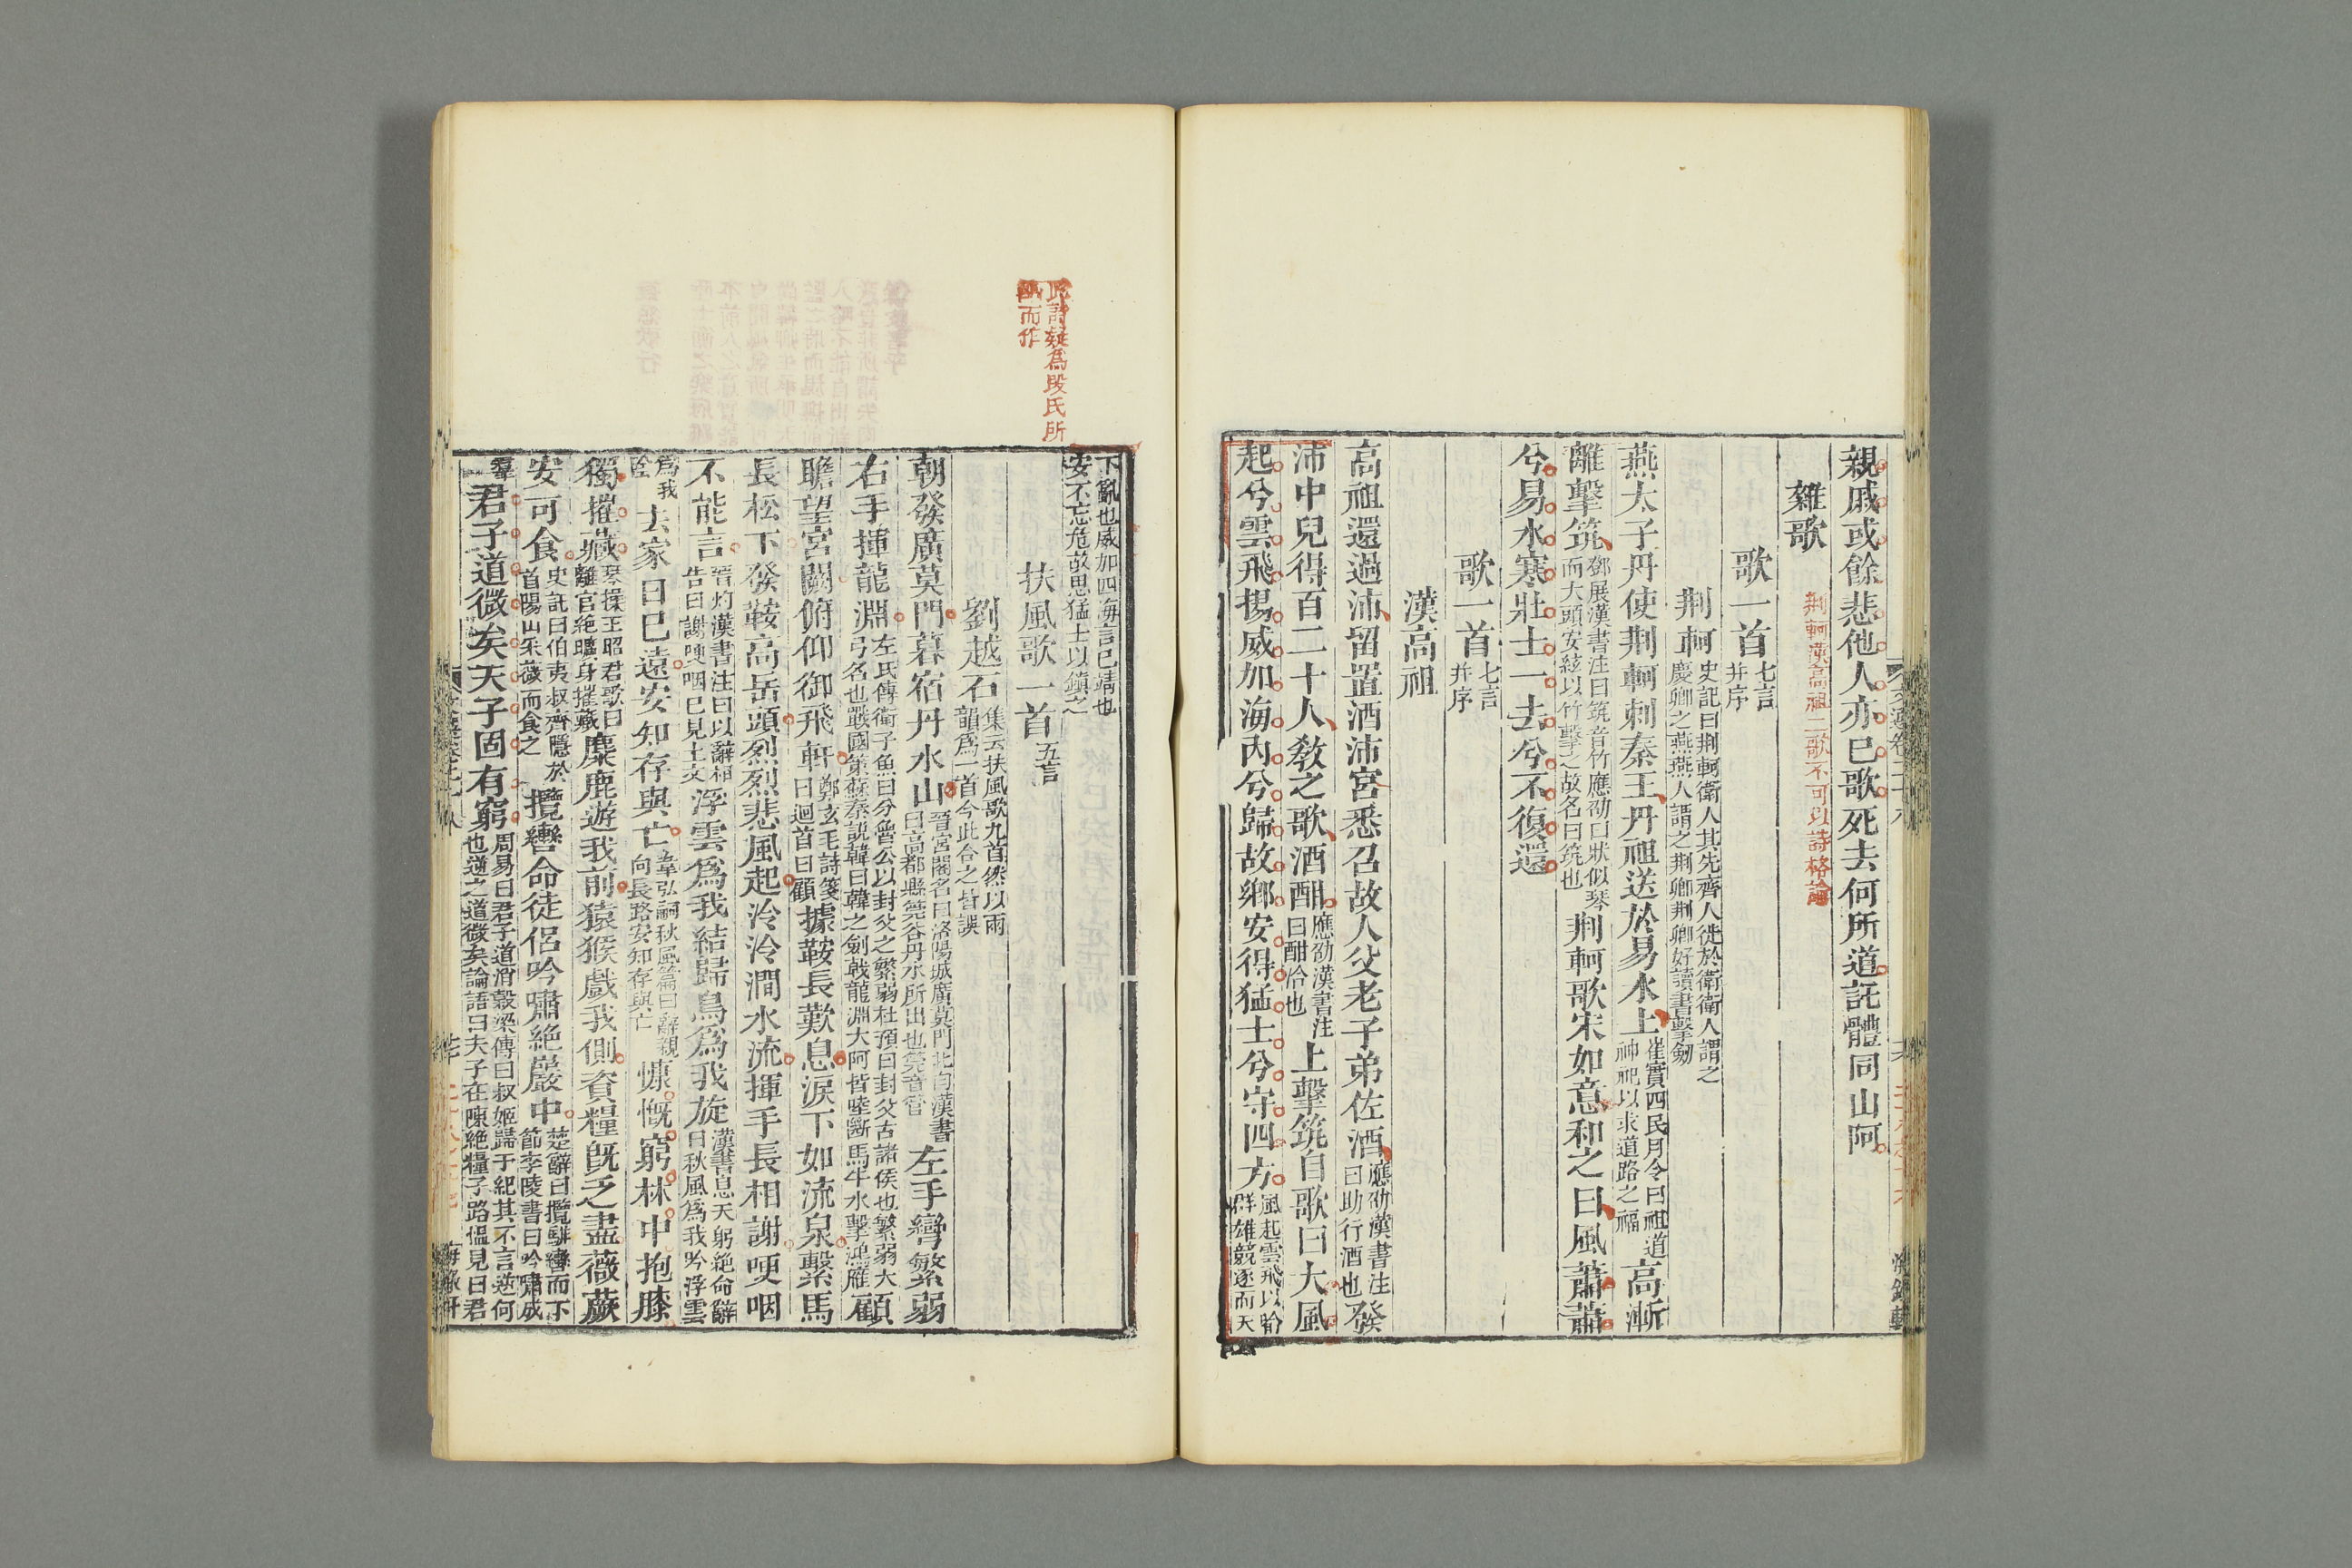 親戚或餘悲他人亦已歌死去何所道託體同山阿
雜歌
荆軻漢高祖二歌不可以詩格論
歌一首七言并序
荆軻史記曰荆軻衛人其先齊人徙於衛衛人謂之慶卿之燕燕人謂之荆卿荆卿好讀書擊劒
燕太子丹使荆軻刺秦王丹祖送於易水上崔寔四民月令曰祖道神祀以求道路之福高漸
離擊筑鄧展漢書注曰筑音竹應劭曰狀似琴而大頭安絃以竹擊之故名曰筑也荆軻歌宋如意和之曰風蕭蕭
兮易水寒壯士一去兮不復還
歌一首七言并序
漢高祖
高祖還過沛留置酒沛宮悉召故人父老子弟佐酒應劭漢書注曰助行酒也發
沛中兒得百二十人敎之歌酒酣應劭漢書注曰酣洽也上擊筑自歌曰大風
起兮雲飛揚威加海內兮歸故鄉安得猛士兮守四方風起雲飛以喻群雄競逐而天
下亂也威加四海言已靖也安不忘危故思猛士以鎭之
此詩疑爲段氏所
而作
扶風歌一首五言
劉越石集云扶風歌九首然以兩韻爲一首今此合之皆誤
朝發廣莫門暮宿丹水山晉宮閣名曰洛陽城廣莫門北向漢書曰高都縣莞谷丹水所出也莞音管左手彎繁弱
右手揮龍淵左氏傳衛子魚曰分魯公以封父之繁弱杜預曰封父古諸侯也繁弱大弓名也戰國策蘇秦說韓曰韓之劍戟龍淵大阿皆陸斷馬牛水擊鴻雁顧
瞻望宮闕俯仰御飛軒鄭玄毛詩箋曰迴首曰顧據鞍長歎息淚下如流泉繫馬
長松下發鞍高岳頭烈烈悲風起泠泠澗水流揮手長相謝哽咽
不能言晉灼漢書注曰以辭相告曰謝哽咽已見上文浮雲爲我結歸鳥爲我旋漢書息夫躬絶命辭曰秋風爲我吟浮雲
爲我陰去家日已遠安知存與亡韋弘嗣秋風篇曰辭親向長路安知存與亡慷慨窮林中抱膝
獨摧藏琴操王昭君歌曰離宮絶曠身摧藏麋鹿遊我前猿猴戲我側資糧旣乏盡薇蕨
安可食史記曰伯夷叔齊隱於首陽山采薇而食之攬轡命徒侶吟嘯絶巖中楚辭曰攬騑轡而下節李陵書曰吟嘯成
羣君子道微矣夫子固有窮周易曰君子道消穀梁傳曰叔姬歸于紀其不言逆何也逆之道微矣論語曰夫子在陳絶糧子路慍見曰君